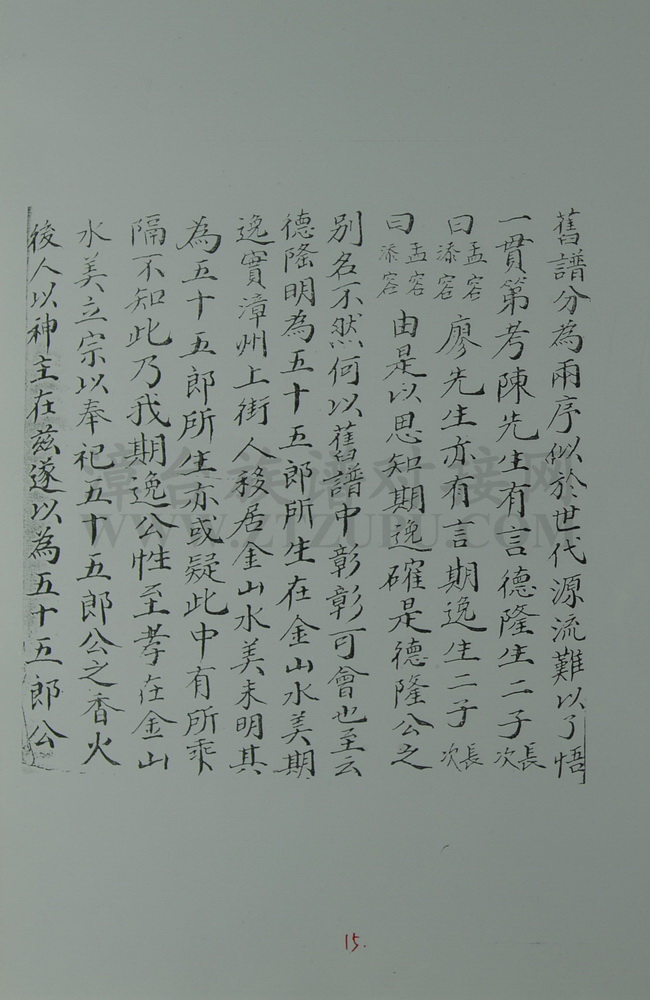 舊譜分為兩序似於世代源流難以了悟
一貫第考陳先生有言德隆生二子長次
曰孟容添容廖先生亦有言期逸生二子長次
曰孟容添容由是以思知期逸確是德隆公之
別名不然何以舊譜中彰彰可會也至云
德隆明為五十五郎所生在金山水美期
逸實漳州上街人移居金山水美未明其
為五十五郎所生亦或疑此中有所乘
隔不知此乃我期逸公性至孝在金山
水美立宗以奉祀五十五郎公之香火
後人以神主在茲遂以為五十五郎公
漳台族谱对接网
WWW.ZTZUPU.COM
15.